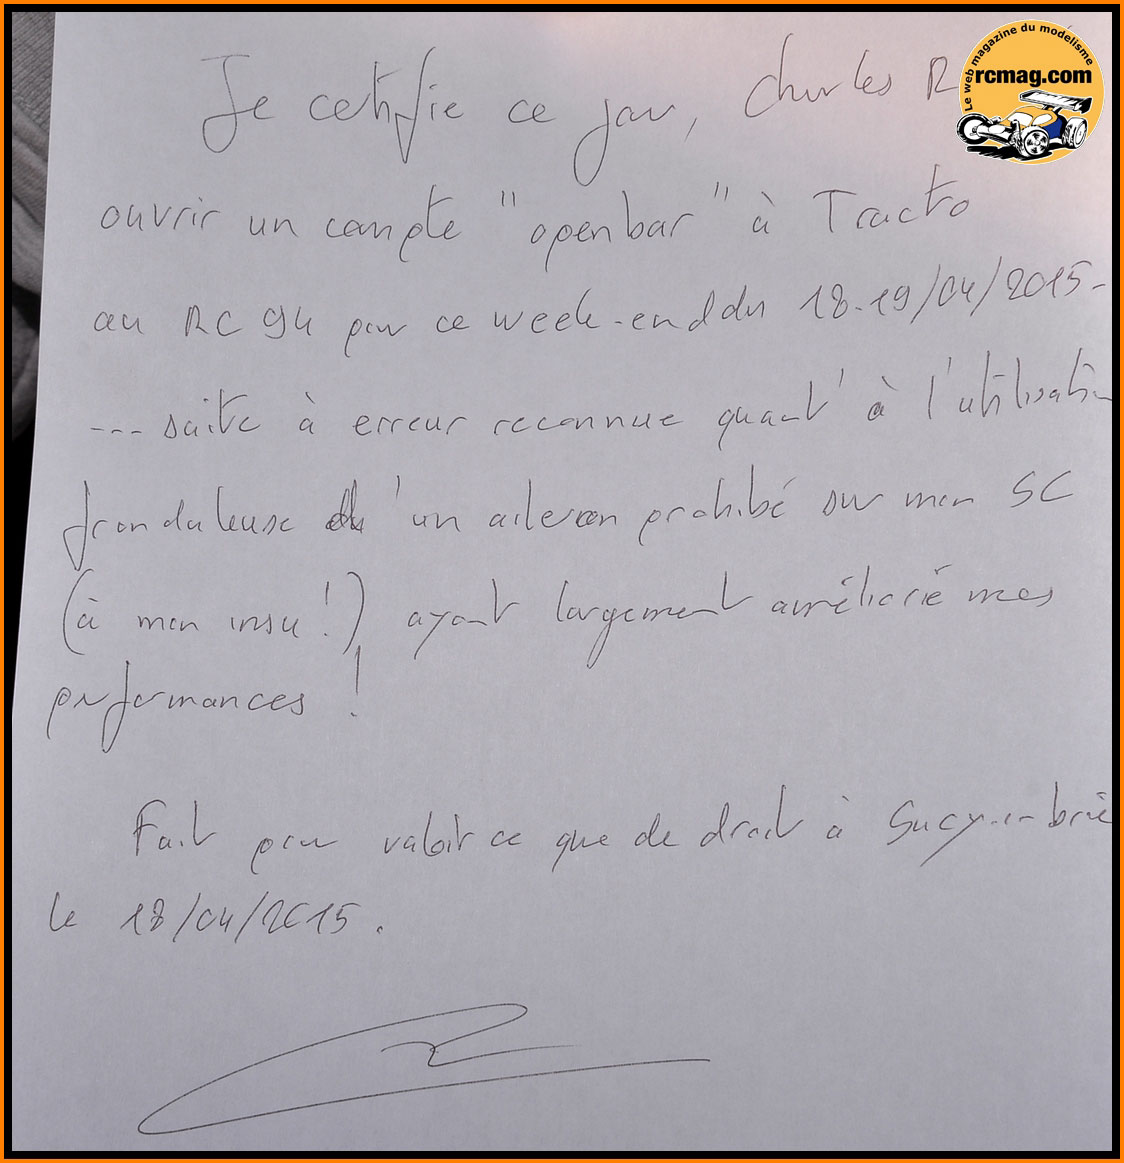 Le web magazine du modélisme
rcmag.com
Je certifie ce jour, Charles R
ouvrir un compte "open bar" à Tracto
au RC 94 pour ce week-end du 18-19/04/2015-
--- suite à erreur reconnue quant' à l'utilisation
frauduleuse d'un aileron prohibé sur mon SC
(à mon insu !) ayant largement amélioré mes
performances !
Fait pour valoir ce que de droit à Sucy-en-brie
le 18/04/2015.